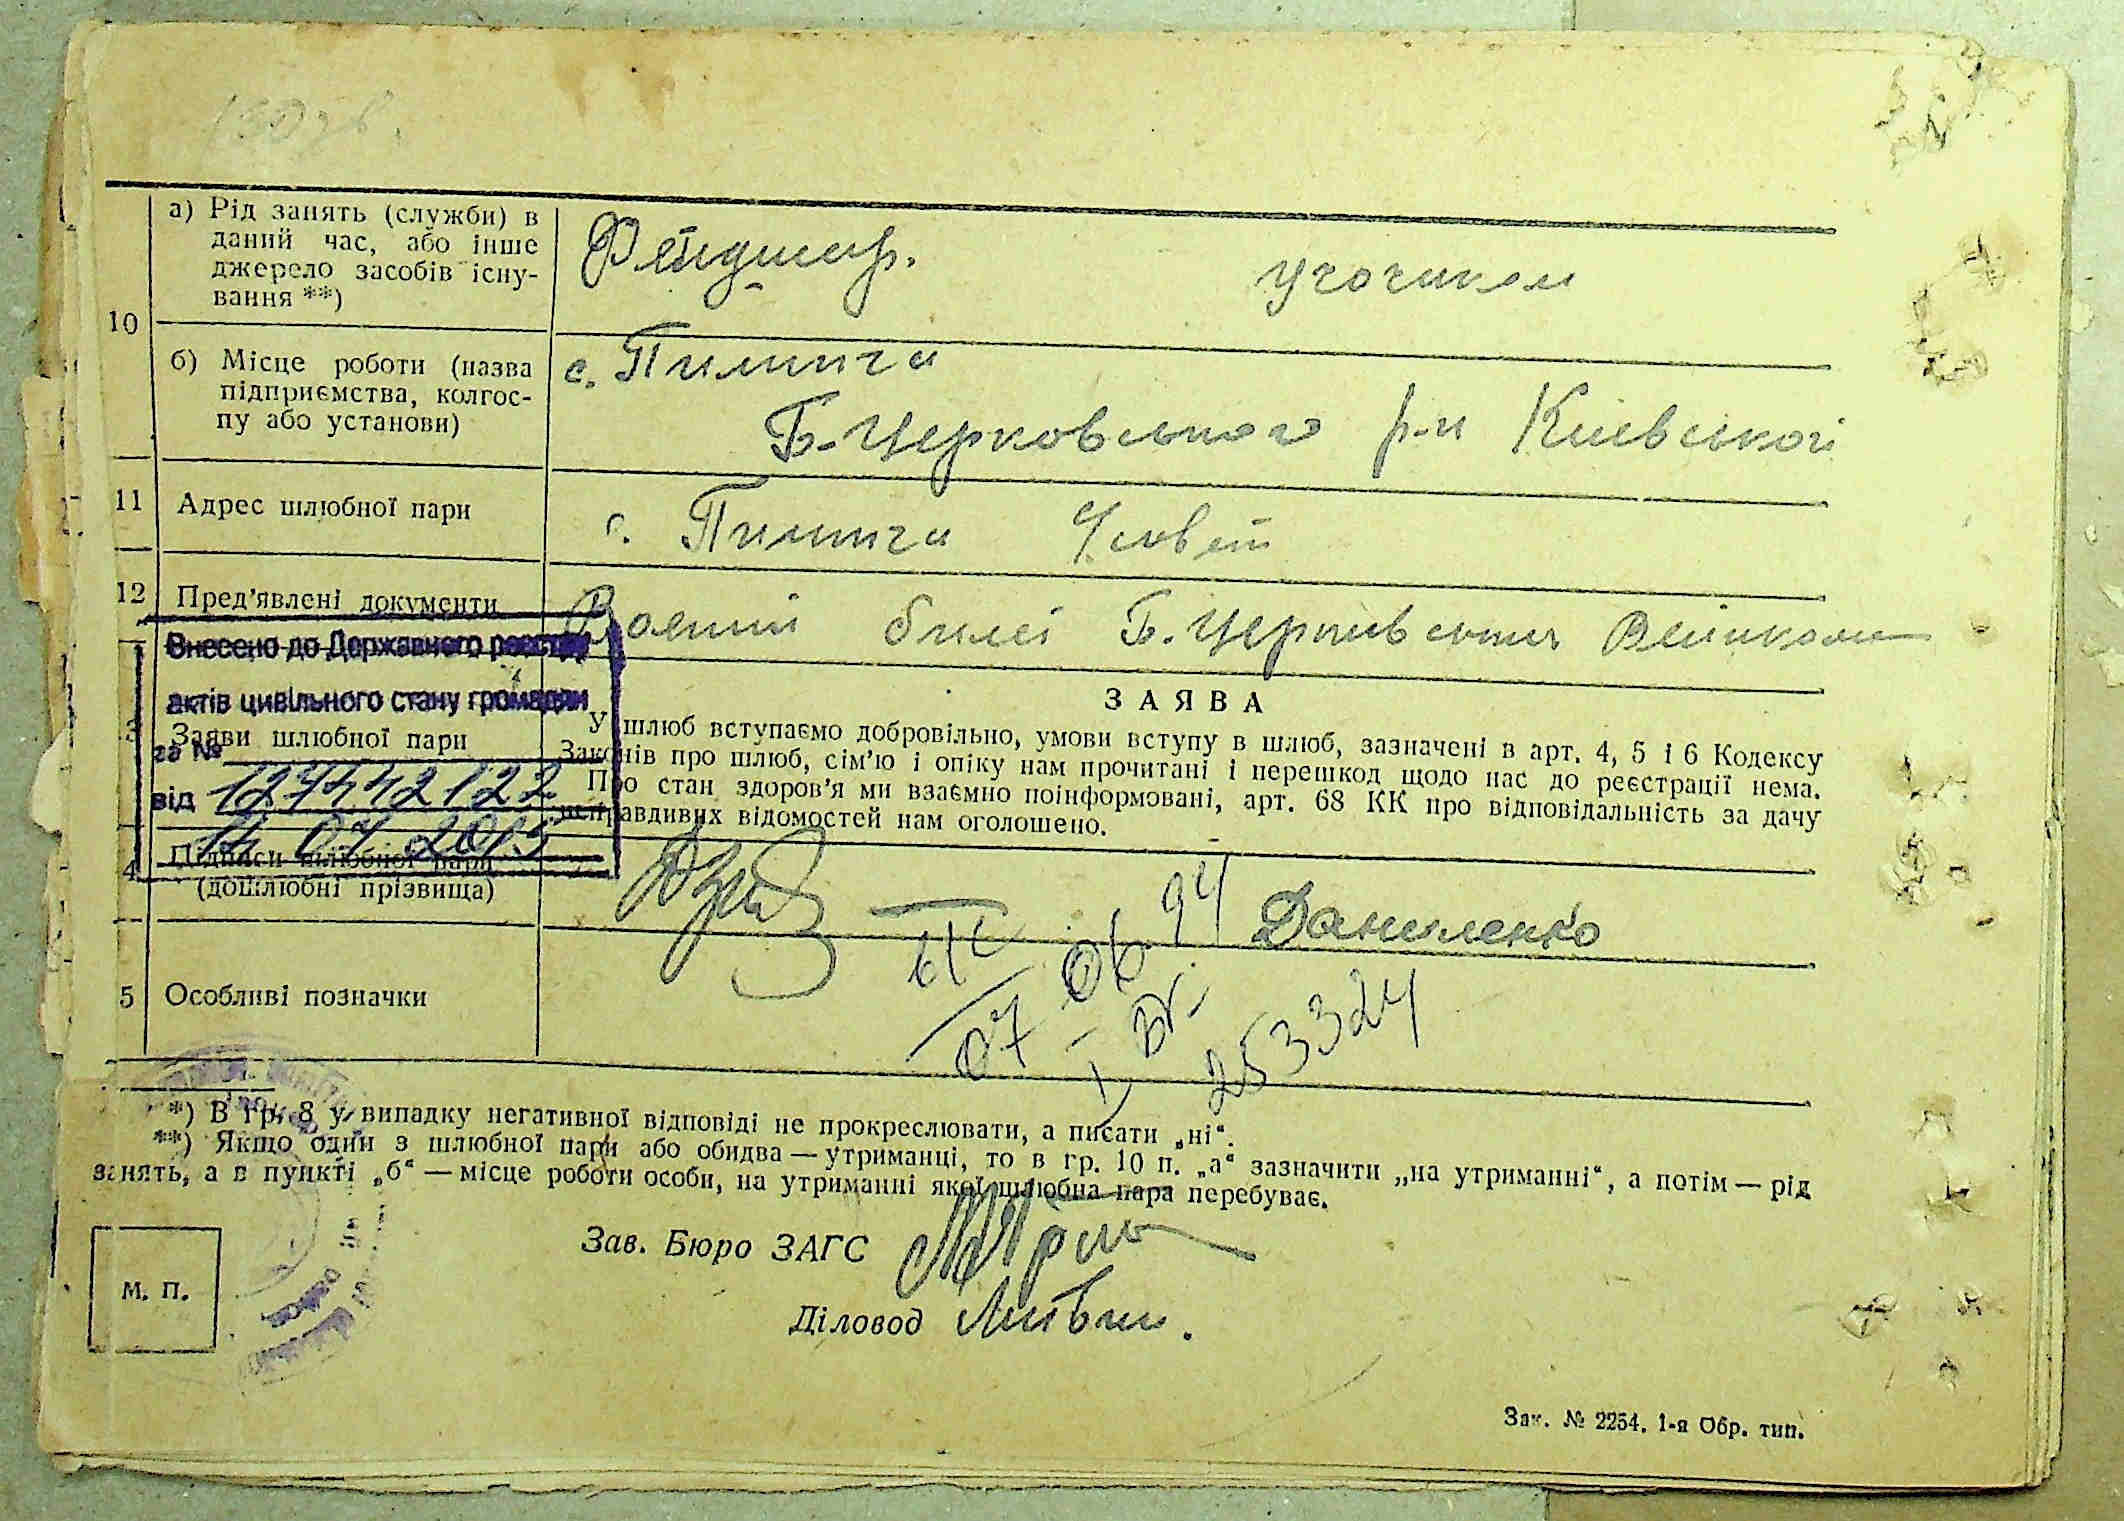 а) Рід занять (служби) в
даний час, або інше
джерело засобів існу-
вання **)
Фельдшер.
10
б) Місце роботи (назва
підприємства, колгос-
пу або установи)
с. Пилипча
Б-Церковського р-н Київської
11 Адрес шлюбної пари
с. Пилипча
12 Пред'явлені документи
Б. Церківським
Внесено до Державного реєстру
актів цивільного стану громадян
за №
127442122
від
14 07 2015
З А Я В А
У шлюб вступаємо добровільно, умови вступу в шлюб, зазначені в арт. 4, 5 і 6 Кодексу
Законів про шлюб, сім'ю і опіку нам прочитані і перешкод щодо нас до реєстрації нема.
Про стан здоров'я ми взаємно поінформовані, арт. 68 КК про відповідальність за дачу
неправдивих відомостей нам оголошено.
3 Заяви шлюбної пари
4 Підписи шлюбної пари
(дошлюбні прізвища)
Даниленко
07 06 94
253324
5 Особливі позначки
*) В гр. 8 у випадку негативної відповіді не прокреслювати, а писати „ні“.
**) Якщо один з шлюбної пари або обидва — утриманці, то в гр. 10 п. „а“ зазначити „на утриманні“, а потім — рід
занять, а в пункті „б“ — місце роботи особи, на утриманні якої шлюбна пара перебуває.
Зав. Бюро ЗАГС
М. П.
Діловод
Зак. № 2254. 1-я Обр. тип.